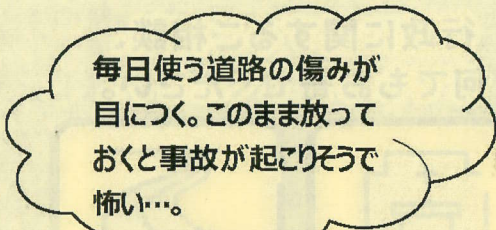 毎日使う道路の傷みが
目につく。このまま放って
おくと事故が起こりそうで
怖い…。